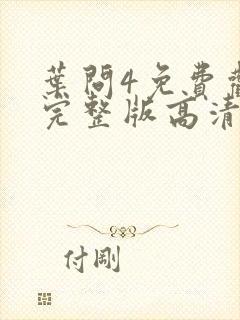 葉問4免費
完整版高清
付剛